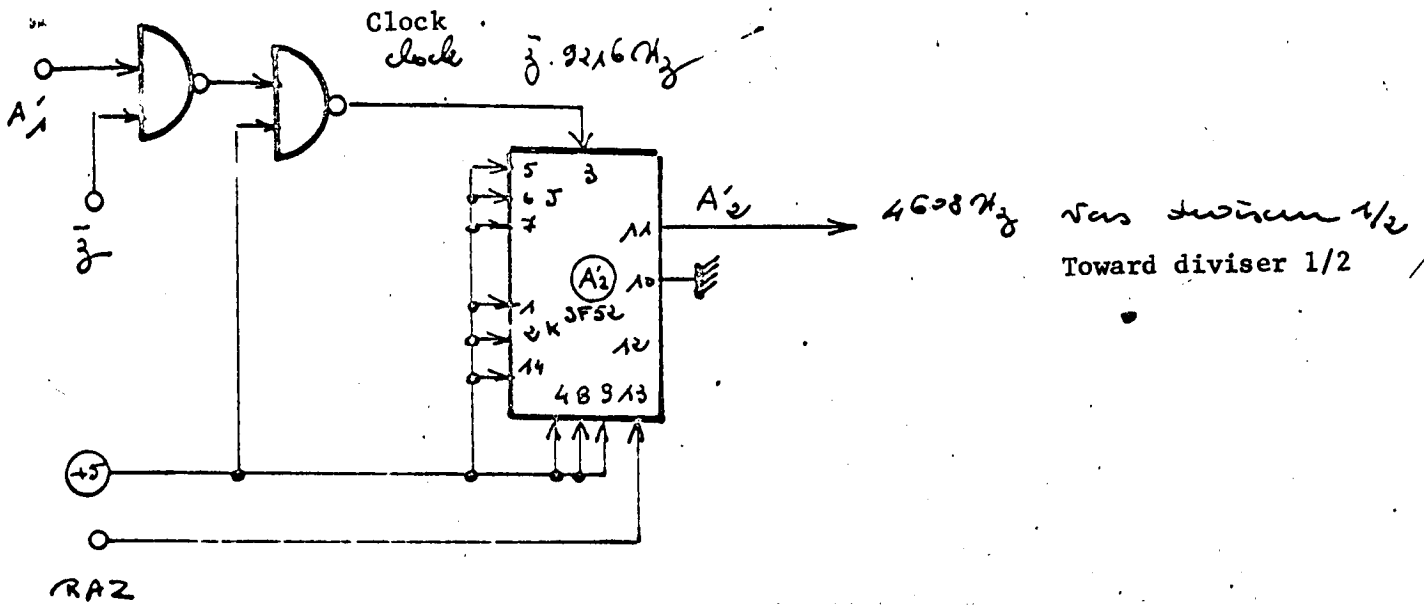 Clock
clock
z̄. 9216 Hz
A'1
z̄
5
3
6 J
7
11
A'2
4608 Hz vers diviseur 1/2
Toward diviser 1/2
A'2
10
1
JF52
2 K
12
14
4 8 9 13
+5
RAZ